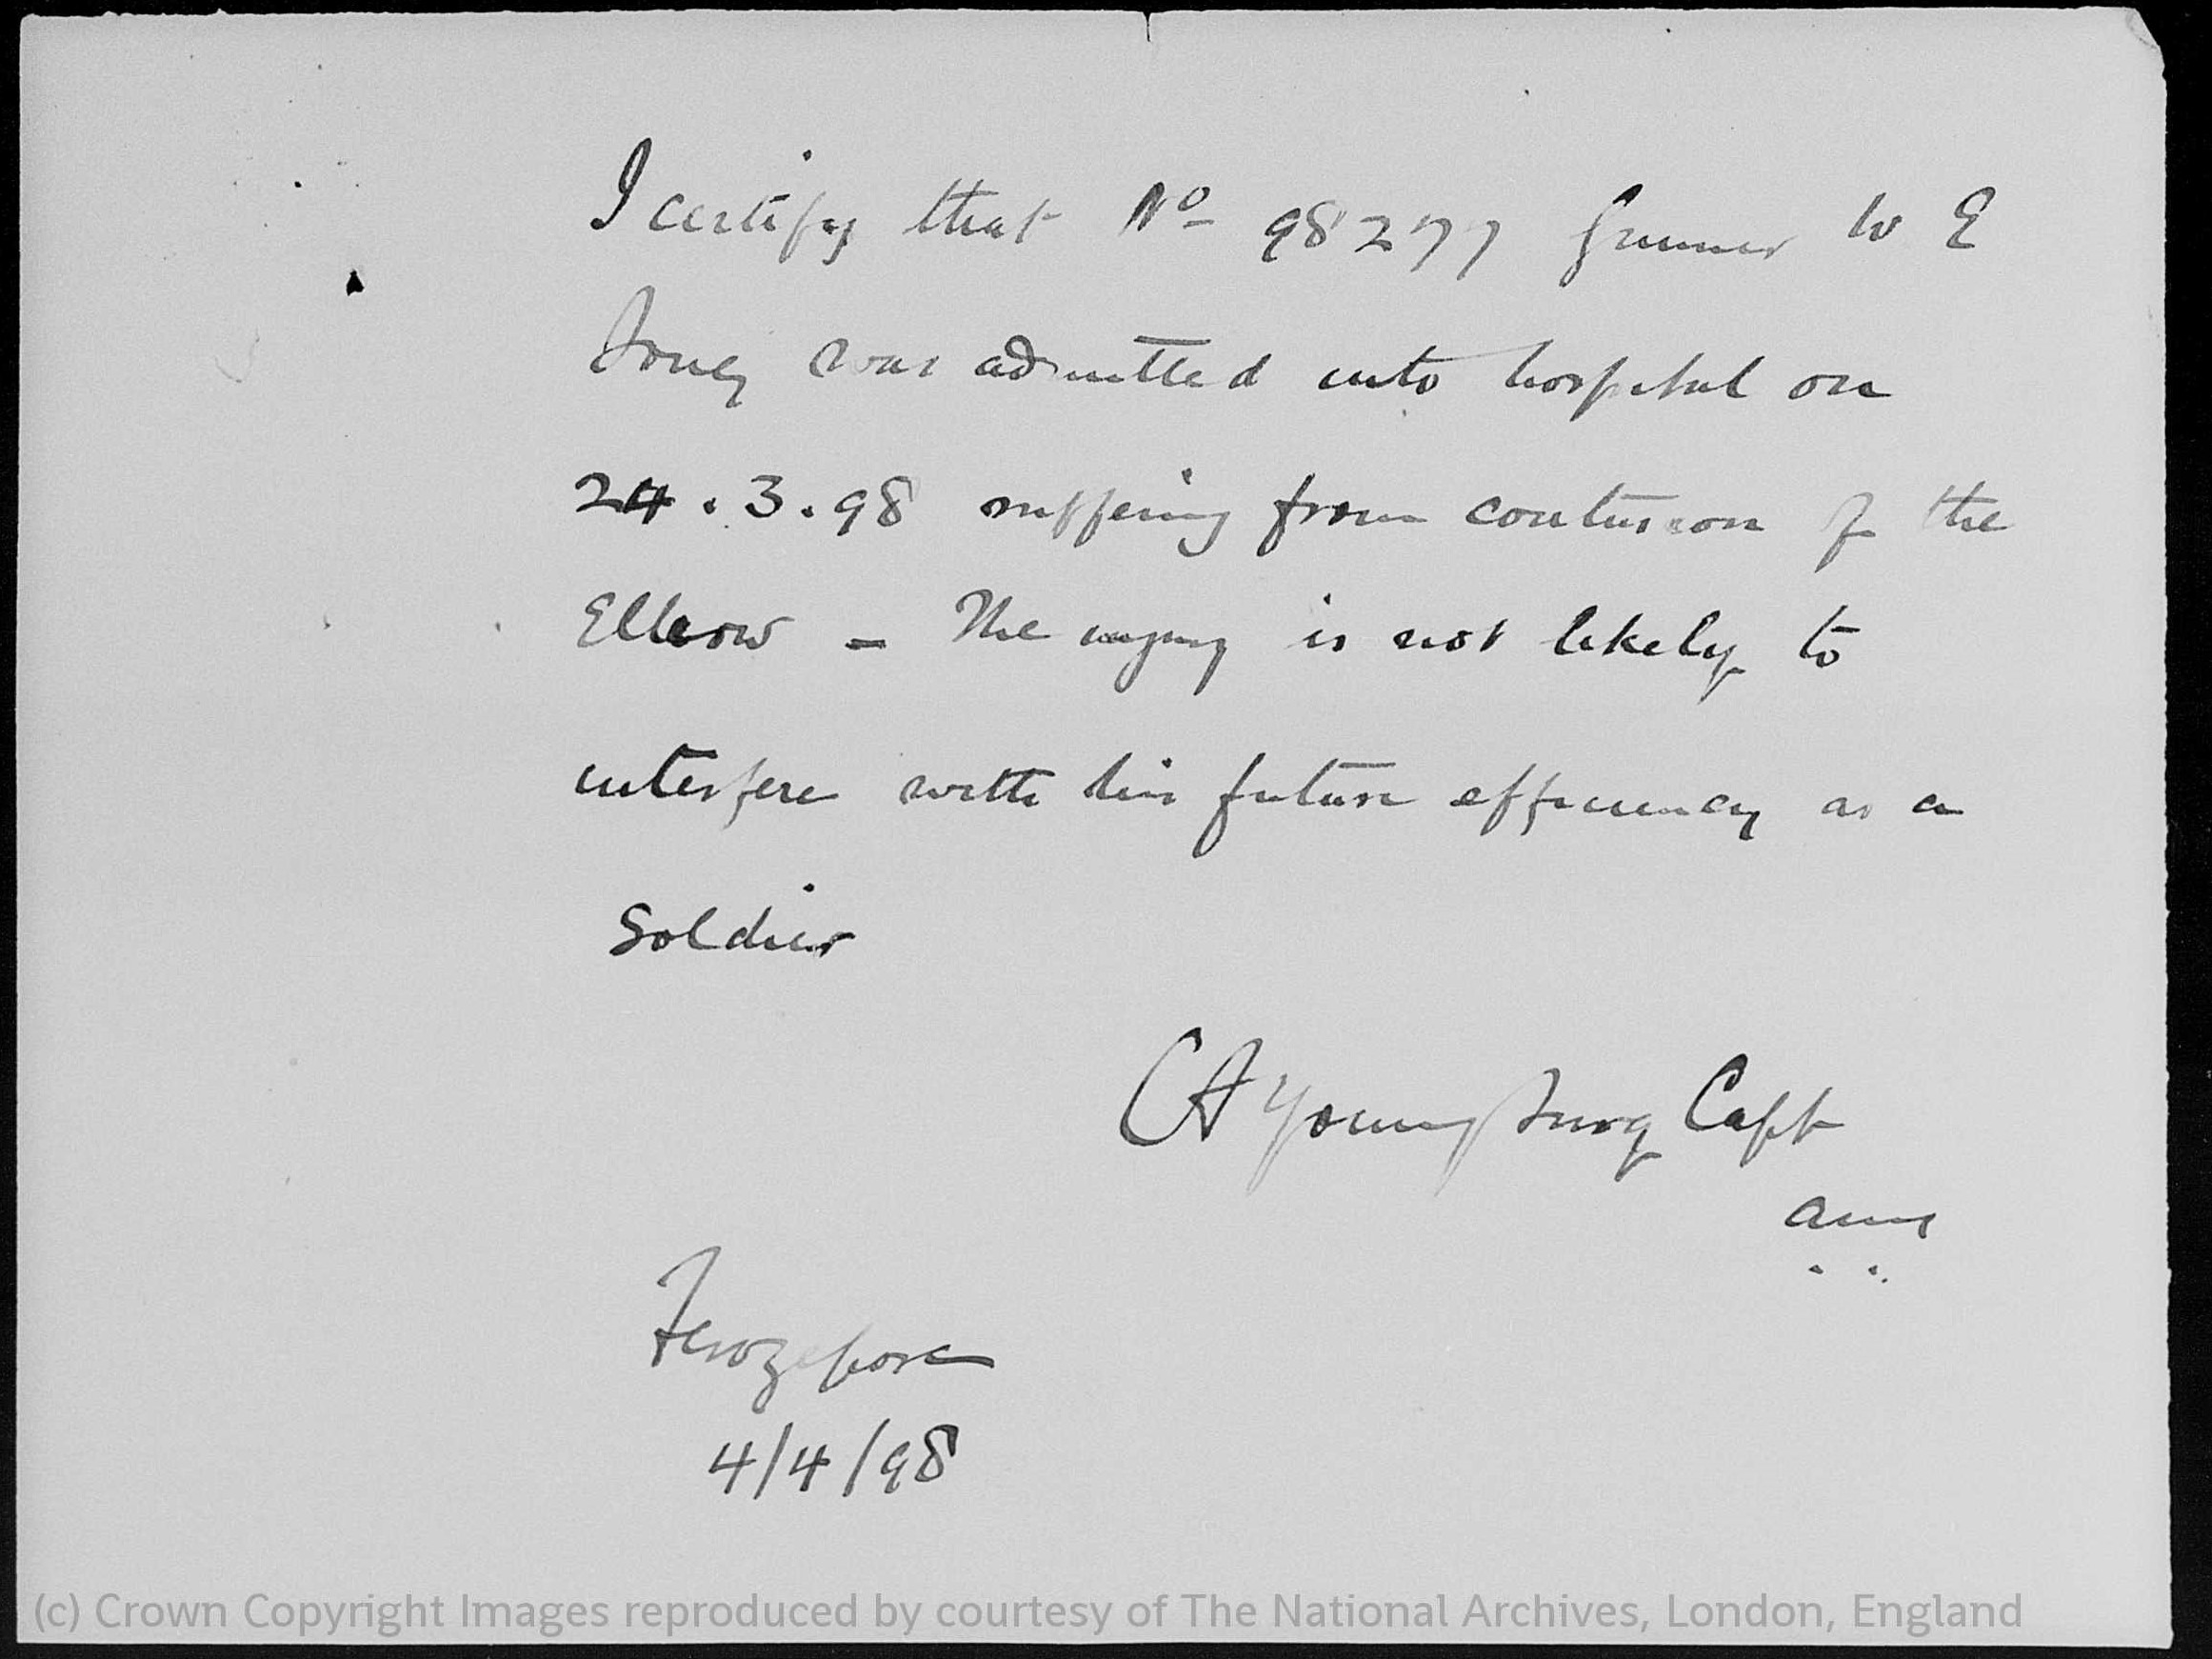 I certify that No 98277 Gunner W E
was admitted into hospital on
24.3.98 suffering from contusion of the
Elbow - The injury is not likely to
interfere with his future efficiency as a
Soldier
CA Young Surg Capt
AMS
Ferozepore
4/4/98
(c) Crown Copyright Images reproduced by courtesy of The National Archives, London, England